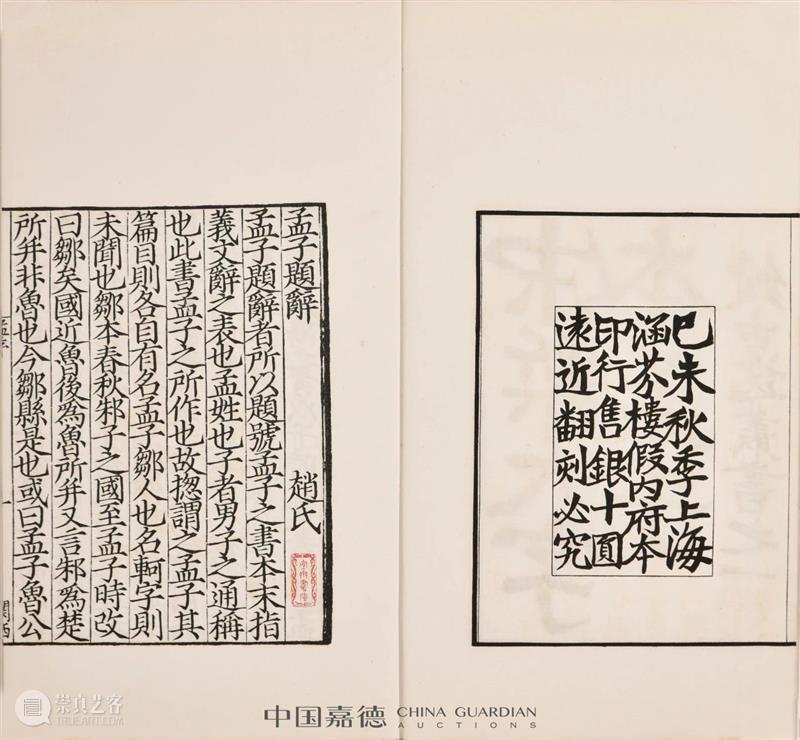 巳未秋季上海
涵芬樓假內府本
印行售銀十圓
遠近翻刻必究
孟子題辭 趙氏
孟子題辭者所以題號孟子之書本末指
義文辭之表也孟姓也子者男子之通稱
也此書孟子之所作也故揔謂之孟子其
篇目則各自有名孟子鄒人也名軻字則
未聞也鄒本春秋邾子之國至孟子時改
曰鄒矣國近魯後為魯所并又言邾為楚
所并非魯也今鄒縣是也或曰孟子魯公
崇真艺客
WWW.TRUEART.COM
中国嘉德 CHINA GUARDIAN
AUCTIONS